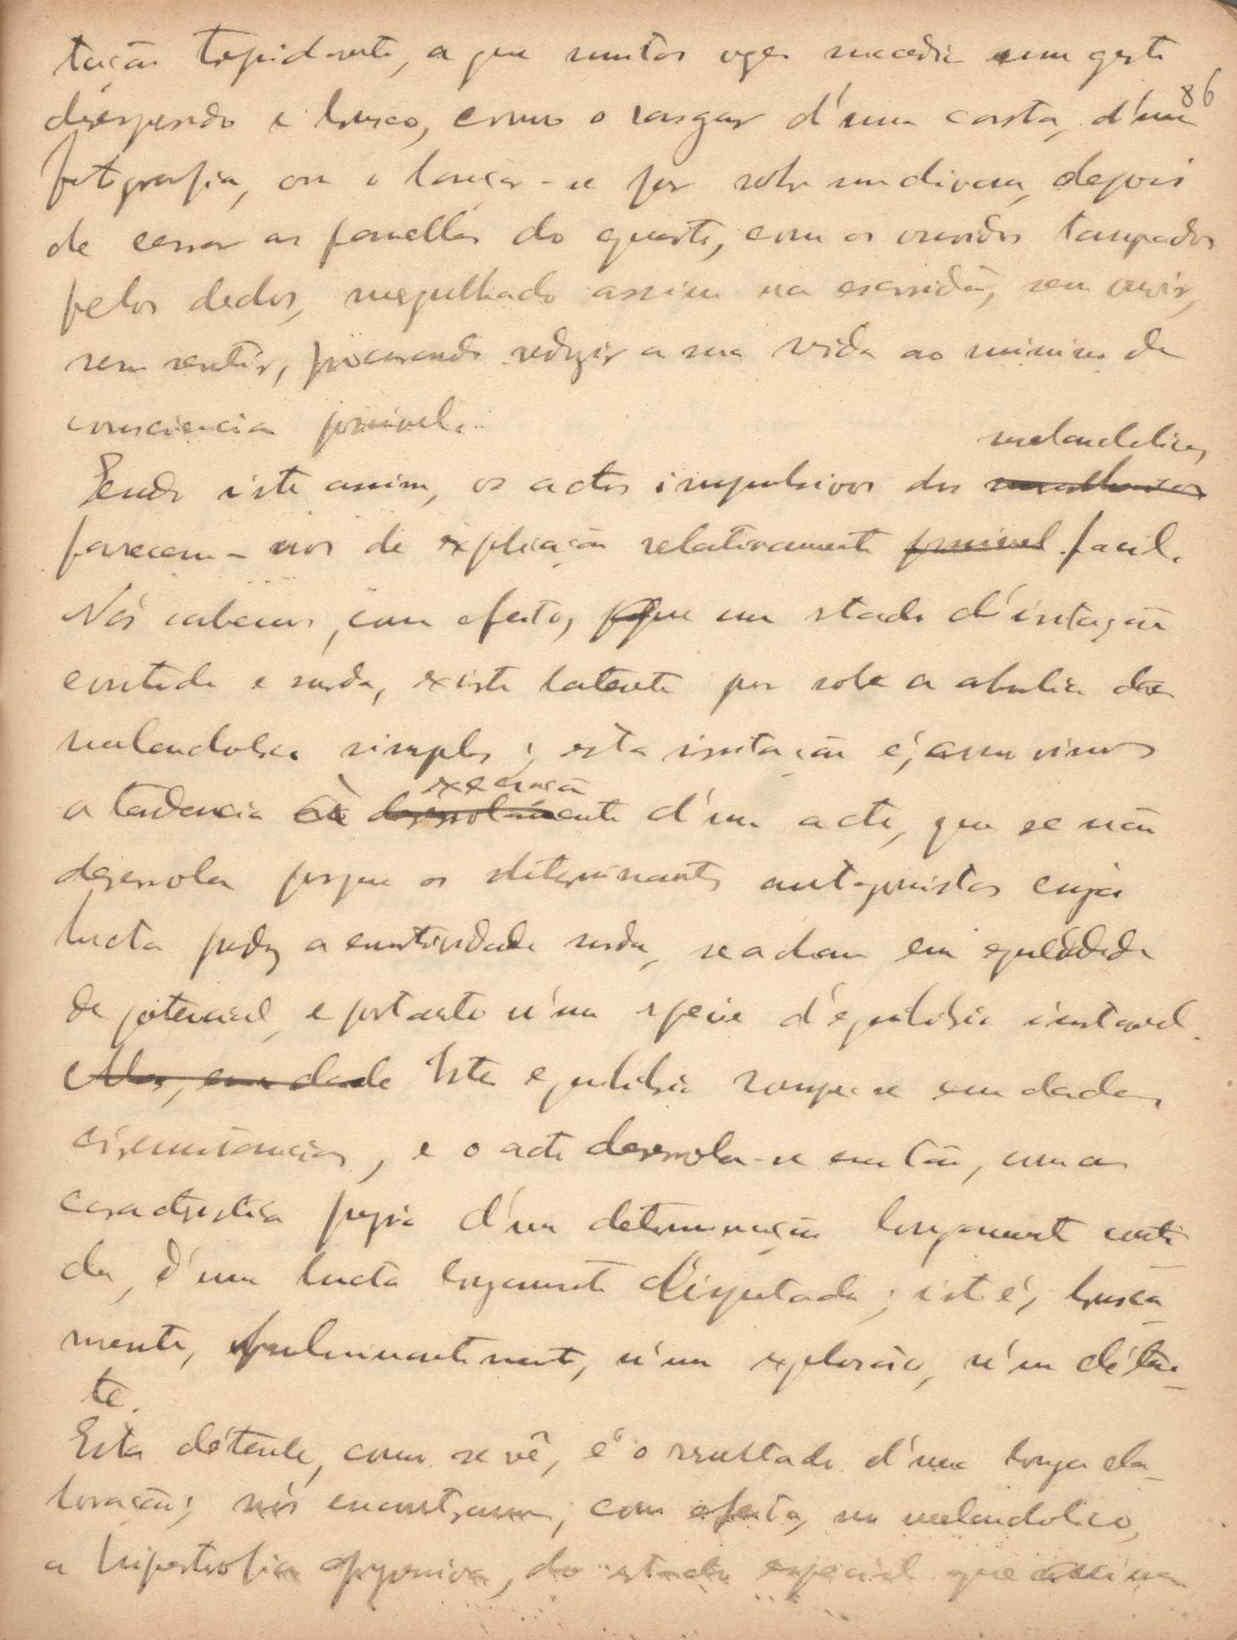 tação trepidante, a que muitas vezes succedia um gesto
86
desesperado e brusco, como o rasgar d'uma carta, d'uma
fotografia, ou o lançar-se por sobre um divan, depois
de cerrar as janellas do quarto, com os ouvidos tampados
pelos dedos, mergulhado assim na escuridão, sem ouvir,
sem sentir, procurando reduzir a sua vida ao minimo de
consciencia possivel.
melancholicos
Sendo isto assim, os actos impulsivos dos
parecem-nos de explicação relativamente possivel facil.
Nós sabemos, com efeito, que um estado d'irritação
contida e surda, existe latente por sob a abulia do
melancholico simples; esta irritação é, como vimos
execução
a tendencia á desenrolamento d'um acto, que se não
desenrola porque os determinantes antagonistas cuja
lucta produz a emotividade surda, se acham em egualdade
de potencial, e portanto n'uma especie d'equilibrio instavel.
Mas, em dada Este equilibrio rompe-se em dadas
circumstancias, e o acto desenrola-se então, com as
caracteristica propria d'uma determinação longamente conti
da, d'uma lucta longamente disputada; isto é, brusca-
mente, fulminantemente, n'uma explosão, n'uma déten-
te.
Esta détente, como se vê, é o resultado d'uma longa ela-
boração; nós encontramos, com efeito, no melancholico,
a hipertrofia, do estado especial que